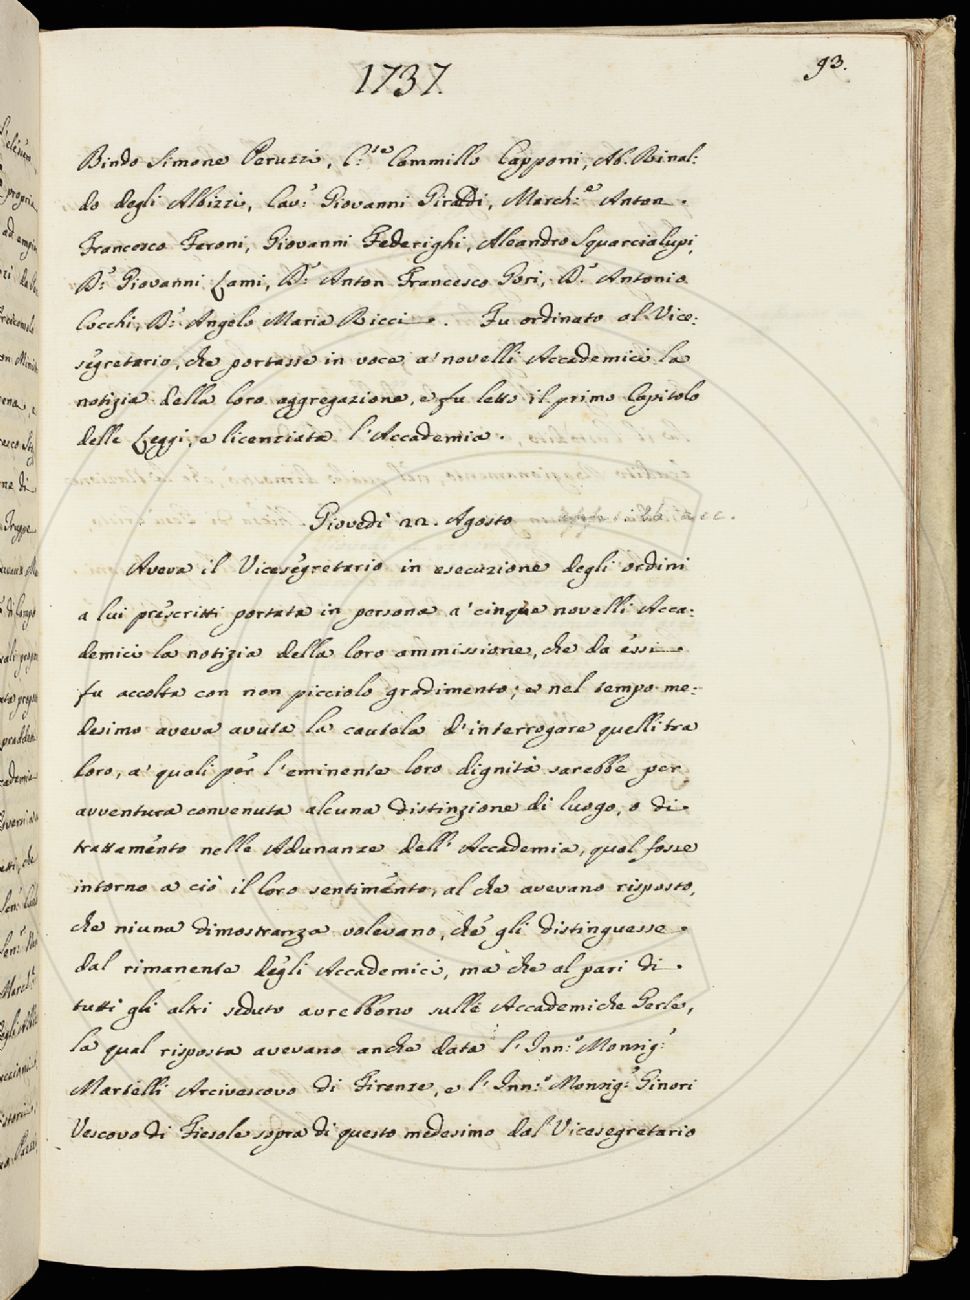 1737.
93.
Bindo Simone Peruzzi, C.te Cammillo Capponi, Ab. Rinal:
do degli Albizzi, Cav.r Giovanni Giraldi, March.e Anton
Francesco Feroni, Giovanni Federighi, Aleandro Squarcialupi,
D.r Giovanni Lami, D.r Anton Francesco Gori, D.r Antonio
Cocchi, D.r Angelo Maria Ricci. Fu ordinato al Vice:
segretario, che portasse in voce a' novelli Accademici la
notizia della loro aggregazione, e fu letto il primo Capitolo
delle Leggi, e licenziata l'Accademia.
Giovedì 22. Agosto
Aveva il Vicesegretario in esecuzione degli ordini
a lui prescritti portata in persona a' cinque novelli Acca:
demici la notizia della loro ammissione, che da essi
fu accolta con non picciolo gradimento; e nel tempo me:
desimo aveva avuta la cautela d'interrogare quelli tra
loro, a' quali per l'eminente loro dignità sarebbe per
avventura convenuta alcuna distinzione di luogo, o di
trattamento nelle Adunanze dell'Accademia, qual fosse
intorno a ciò il loro sentimento, al che avevano risposto,
che niuna dimostranza volevano, che gli distinguesse
dal rimanente degli Accademici, ma che al pari di
tutti gli altri seduto avrebbono sulle Accademiche Gerle,
la qual risposta avevano anche data l'Inn.o Monsig.r
Martelli Arcivescovo di Firenze, e l'Inn.o Monsig.r Ginori
Vescovo di Fiesole sopra di questo medesimo dal Vicesegretario